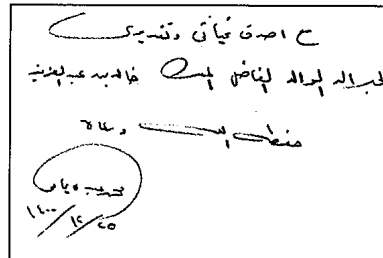 مع اصدق تحياتي وتقديري
لجلالة الوالد الفاضل الملك خالد بن عبد العزيز
حفظه الله ورعاه
١٤٠٠/١٢/٢٥